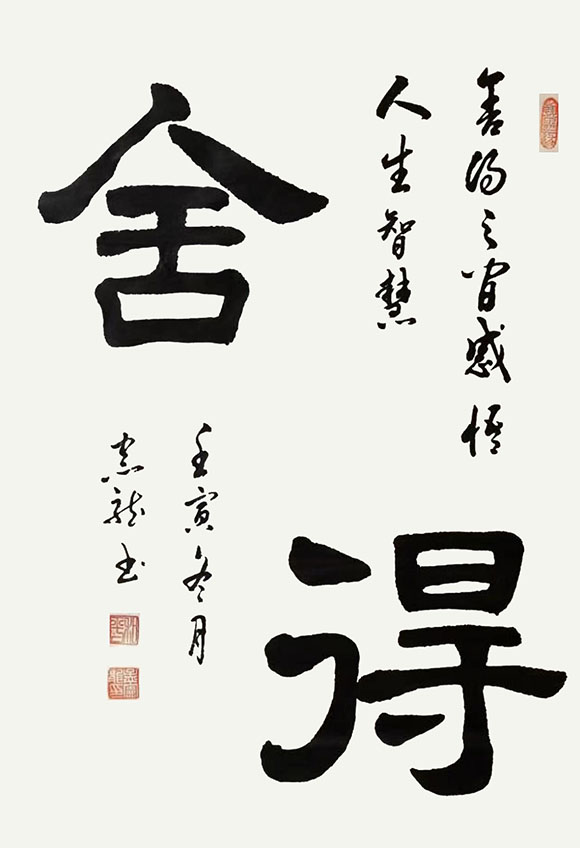 舍得
舍得之间感悟
人生智慧
壬寅冬月
龙书